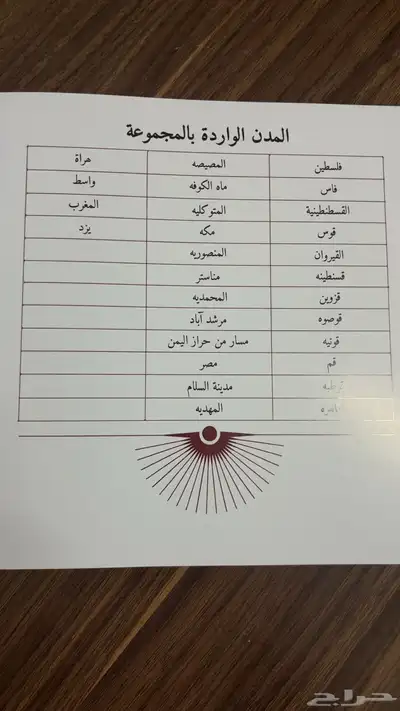 المدن الواردة بالمجموعة
فلسطين المصيصه هراة
فاس ماه الكوفه واسط
القسطنطينية المتوكليه المغرب
قوس مكه يزد
القيروان المنصوريه
قسنطينه مناستر
قزوين المحمديه
قوصوه مرشد آباد
قونيه مسار من حراز اليمن
قم مصر
مدينة السلام
المهديه
حراج